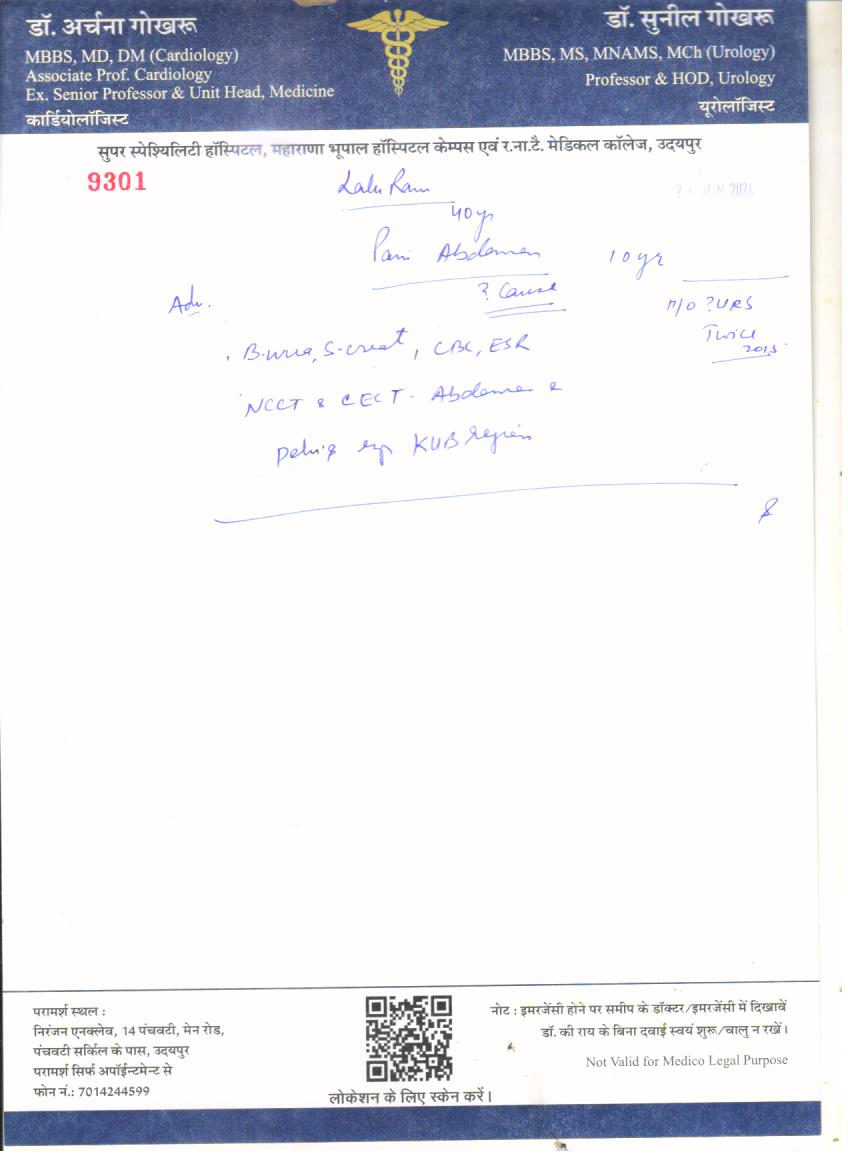 डॉ. अर्चना गोखरू
MBBS, MD, DM (Cardiology)
Associate Prof. Cardiology
Ex. Senior Professor & Unit Head, Medicine
कार्डियोलॉजिस्ट
डॉ. सुनील गोखरू
MBBS, MS, MNAMS, MCh (Urology)
Professor & HOD, Urology
यूरोलॉजिस्ट
सुपर स्पेश्यिलिटी हॉस्पिटल, महाराणा भूपाल हॉस्पिटल केम्पस एवं र.ना.टै. मेडिकल कॉलेज, उदयपुर
9301
Lalu Ram
JUN
40 yr
Pain Abdomen 10 yr
? Cause
H/O ? URS
Twice
2015
Adv.
B. urea, S. creat, CBC, ESR
NCCT & CECT - Abdomen &
Pelvis KUB region
परामर्श स्थल :
निरंजन एनक्लेव, 14 पंचवटी, मेन रोड,
पंचवटी सर्किल के पास, उदयपुर
परामर्श सिर्फ अपॉईन्टमेन्ट से
फोन नं.: 7014244599
लोकेशन के लिए स्केन करें।
नोट : इमरजेंसी होने पर समीप के डॉक्टर/इमरजेंसी में दिखावें
डॉ. की राय के बिना दवाई स्वयं शुरू/चालु न रखें।
Not Valid for Medico Legal Purpose